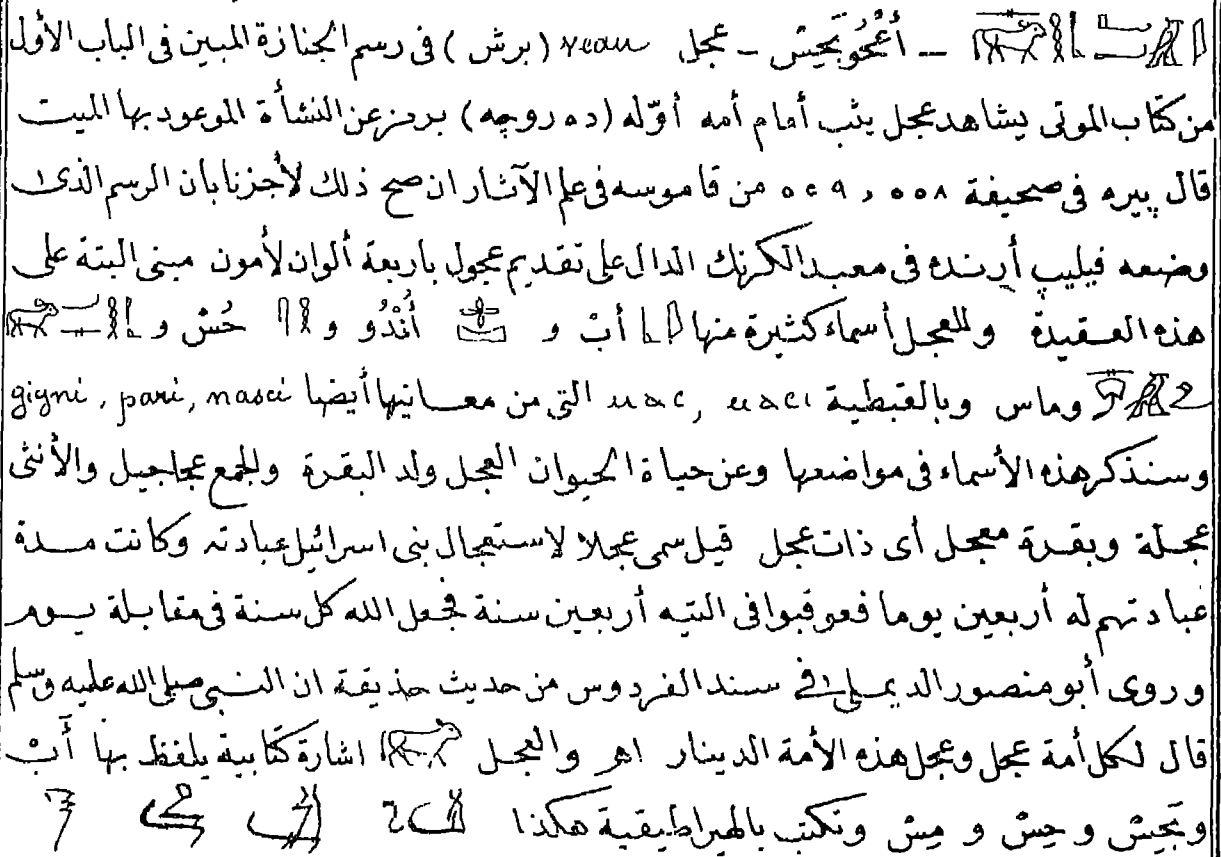 أعُحُوبَحِيسْ - عجل veau (برش) فى رسم الجنازة المبين فى الباب الأول
من كتاب الموتى يشاهد عجل يثب أمام أمه أوّله (ده روچه) برمز عن النشأة الموعود بها الميت
قال پيره فى صحيفة ٥٥٨ , ٥٤٩ من قاموسه فى علم الآثار ان صح ذلك لأجزنا بان الرسم الذى
وضعه فيليپ أرنده فى معبد الكرنك الدال على تقديم عجول باربعة ألوان لأمون مبنى البتة على
هذه العقيدة وللعجل أسماء كثيرة منها أبْ و أُنْدُو و حُسْ و
وماس وبالقبطية ⲙⲁⲥ, ⲙⲁⲥⲓ التى من معانيها أيضا gigni, pari, nasci
وسنذكر هذه الأسماء فى مواضعها وعن حياة الحيوان العجل ولد البقرة والجمع عجاجيل والأنثى
عجلة وبقرة معجل أى ذات عجل قيل سمى عجلا لاستعجال بنى اسرائيل عبادته وكانت مدة
عبادتهم له أربعين يوما فعوقبوا فى التيه أربعين سنة فجعل الله كل سنة فى مقابلة يوم
وروى أبو منصور الديملى فى سند الفردوس من حديث حذيفة ان النبى صلى الله عليه وسلم
قال لكل أمة عجل وعجل هذه الأمة الدينار اهـ والعجل اشارة كتابية يلفظ بها أَبْ
وبَحِيسْ و حِسْ و مِسْ وتكتب بالهيراطيقية هكذا